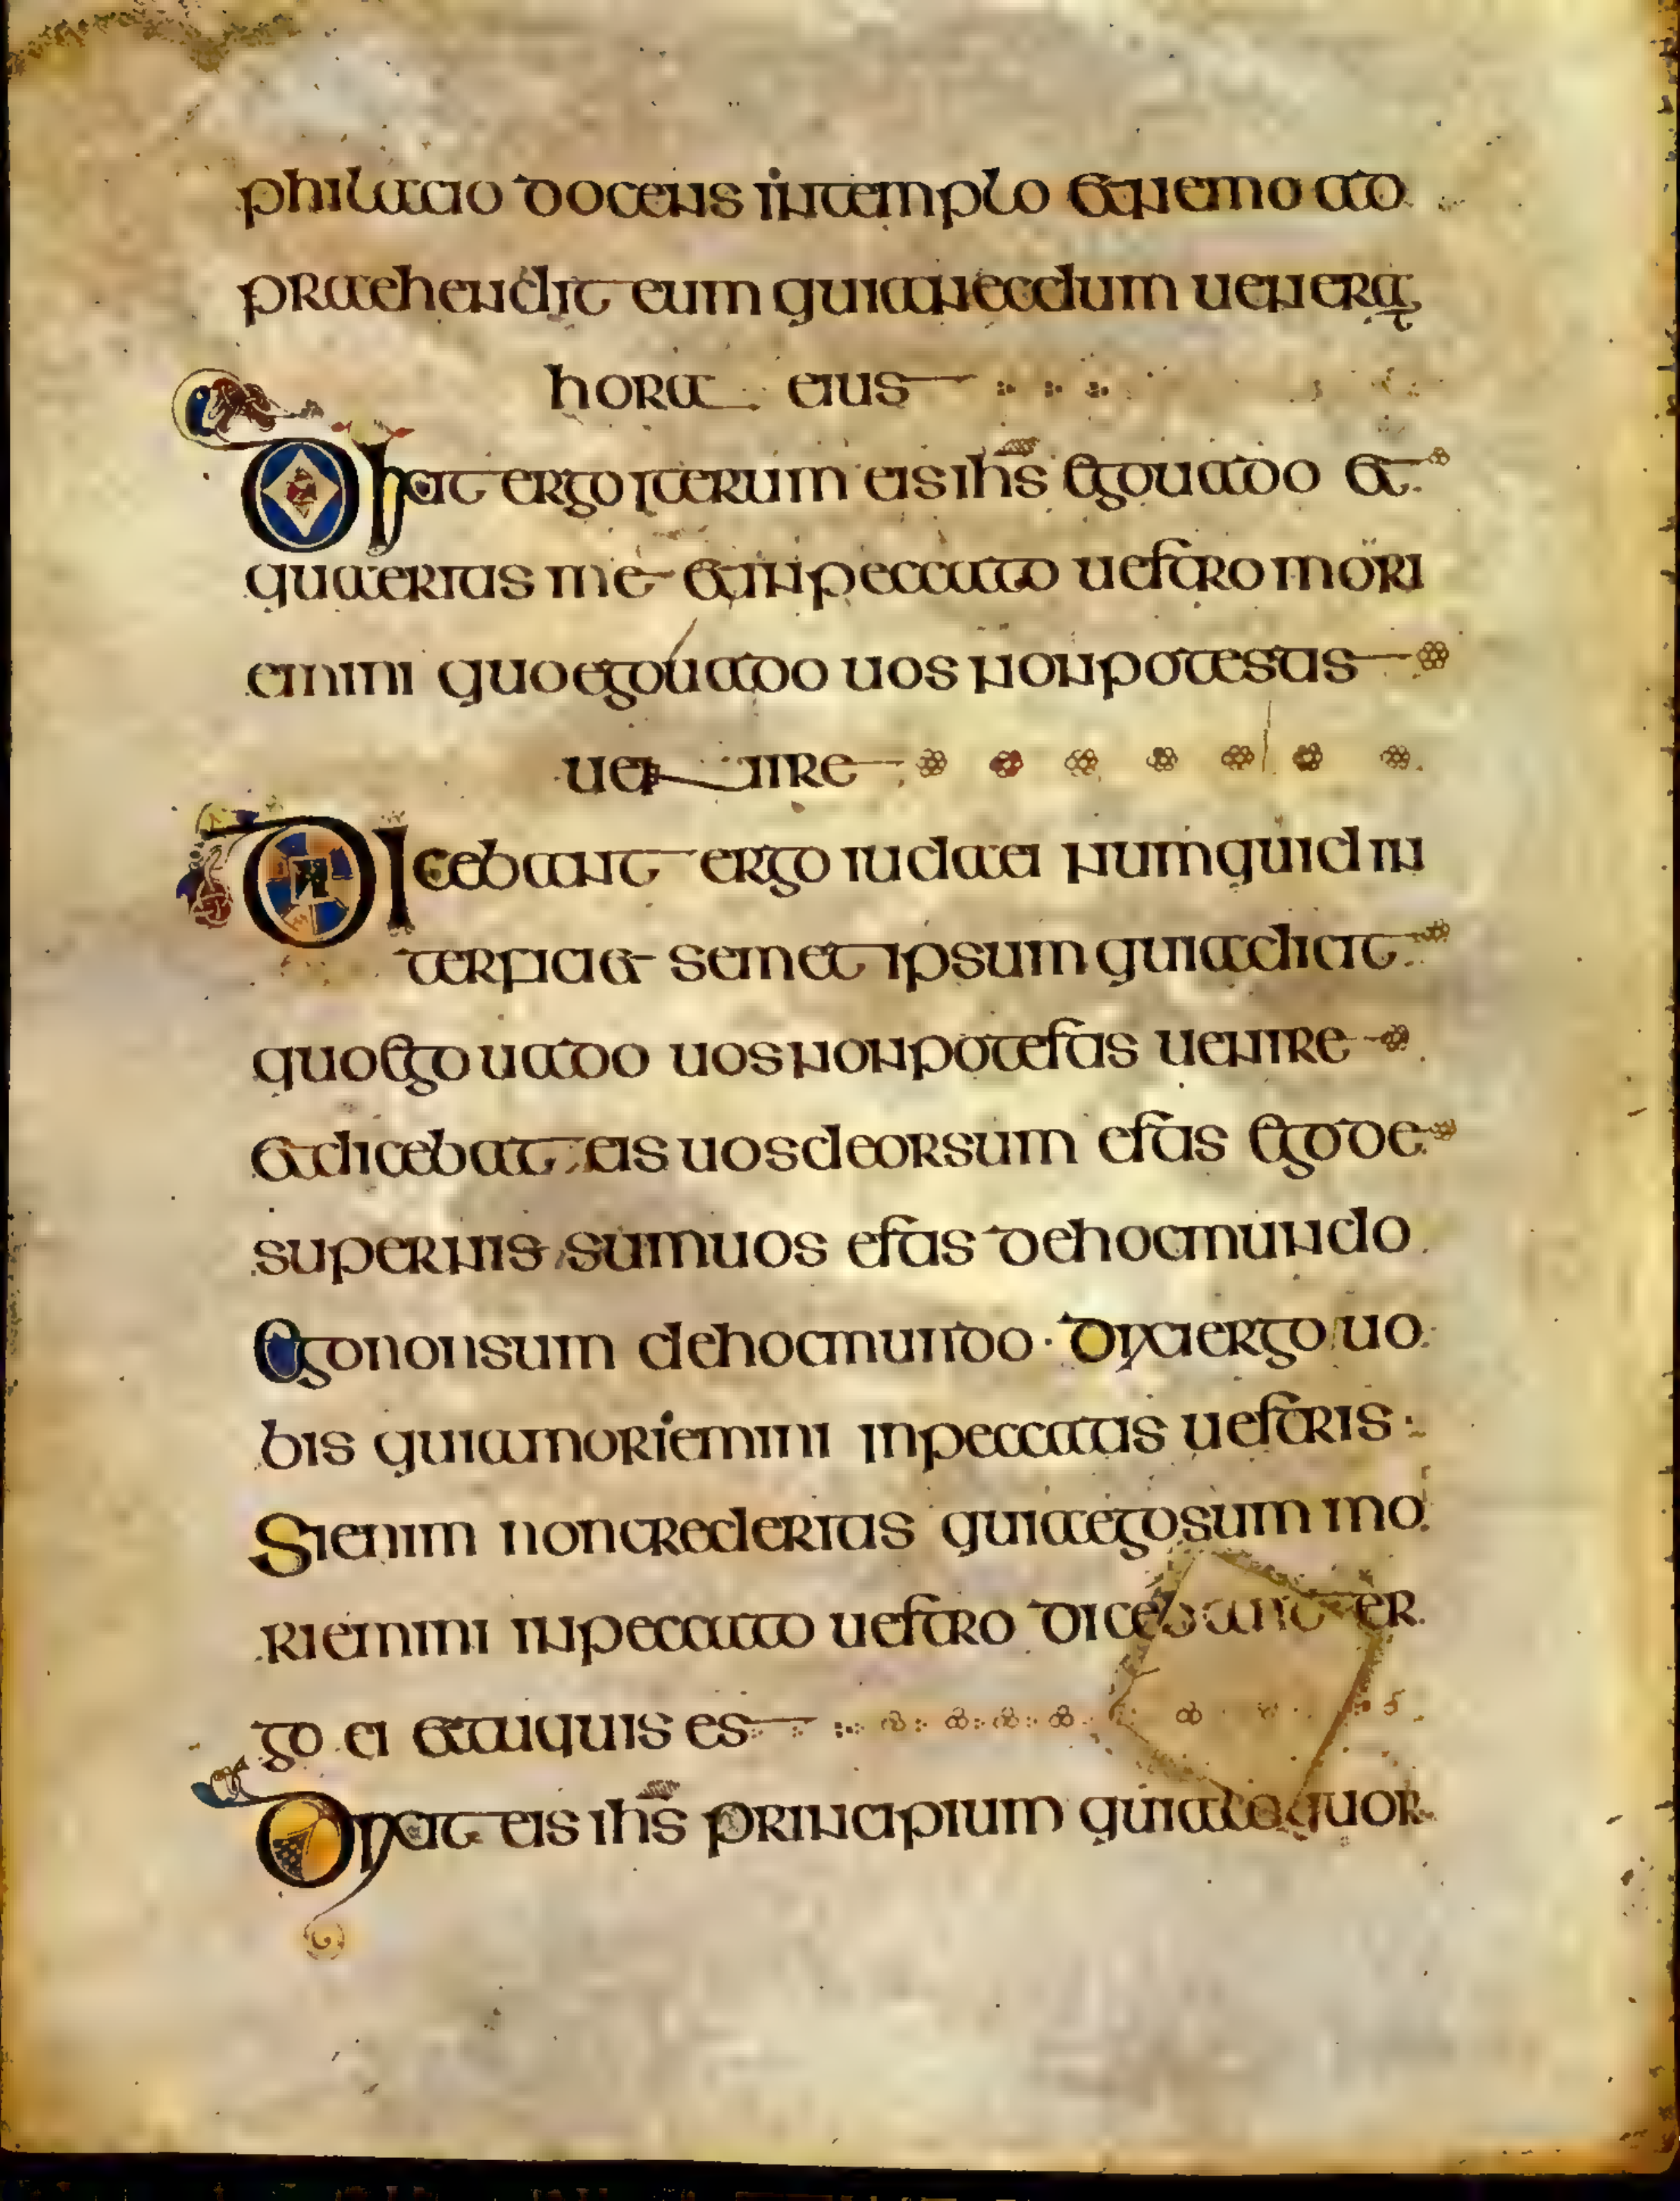 philacio docens in templo et nemo ad
praehendit eum quia necdum uenerat
hora eius
Dixit ergo iterum eis ihs ego uado et
quaeritis me et in peccato uestro mori
emini quo ego uado uos non potestis
uenire
Dicebant ergo iudaei numquid in
terficiet semet ipsum quia dicit
quo ego uado uos non potestis uenire
et dicebat eis uos deorsum estis ego de
supernis sum uos estis de hoc mundo
Ego non sum de hoc mundo · Dixi ergo uo
bis quia moriemini in peccatis uestris
Si enim non crederitis quia ego sum mo
riemini in peccato uestro dicebant er
go ei et tu quis es
Dixit eis ihs principium quia loquor